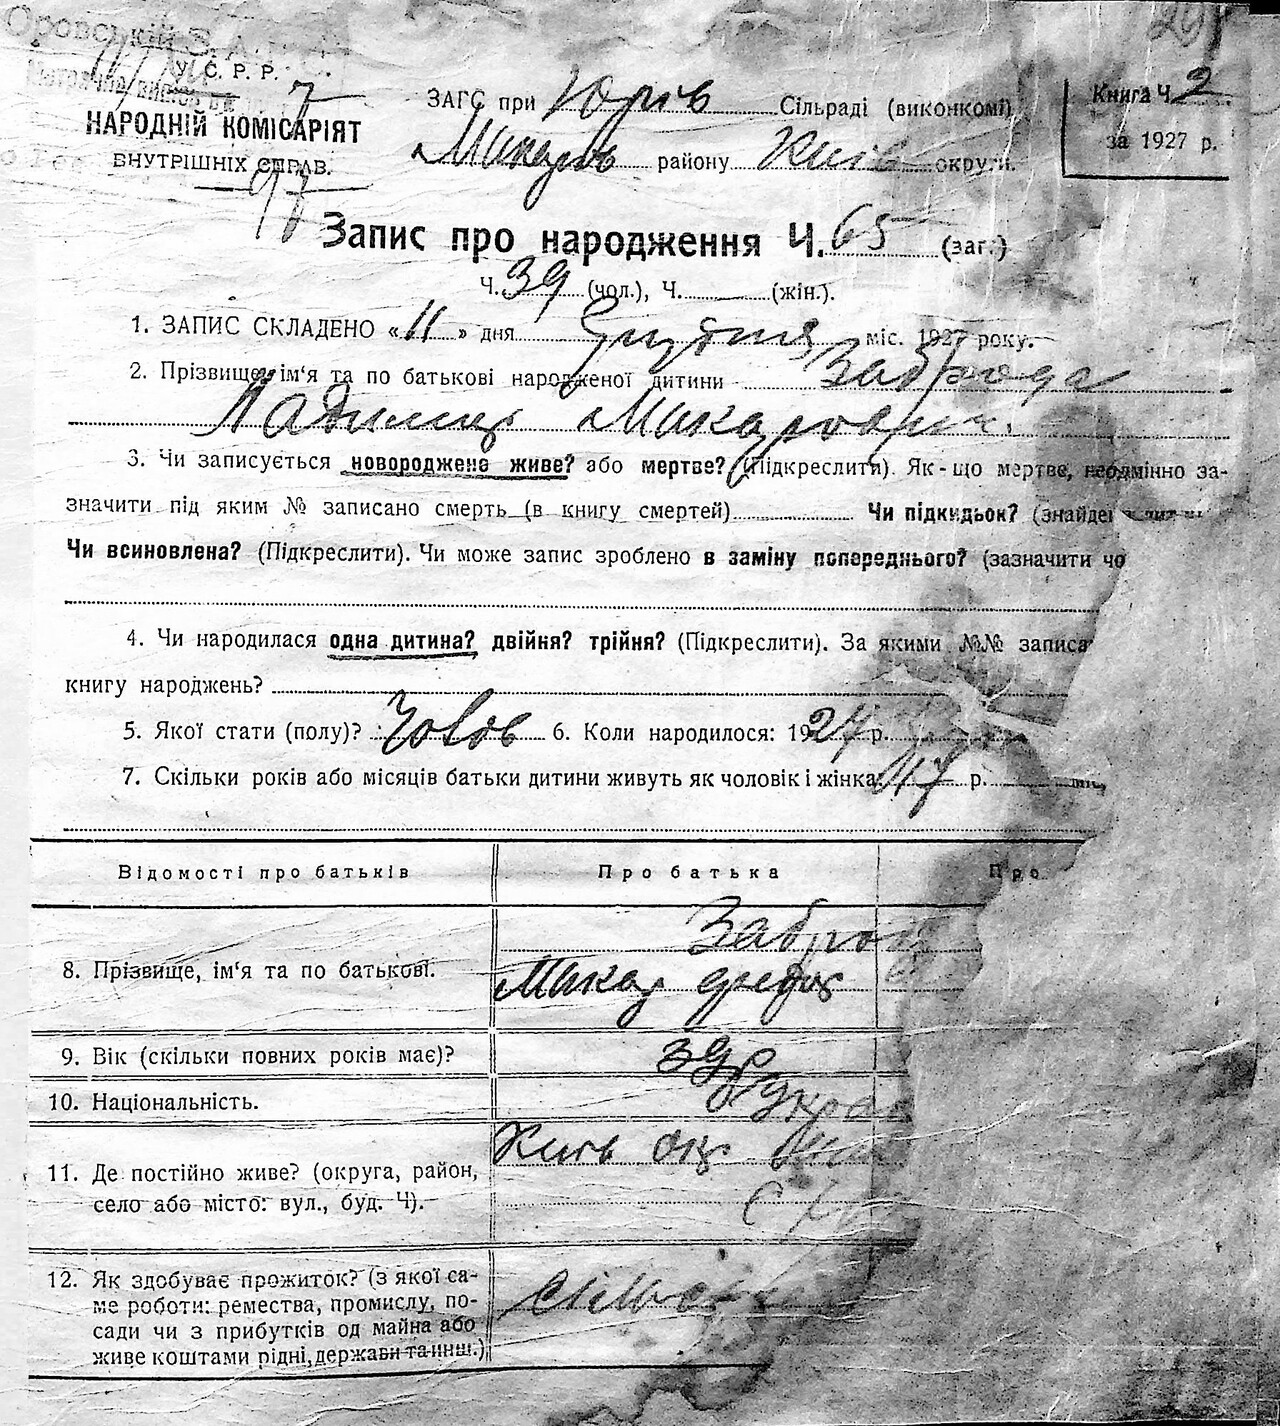 У. С. Р. Р.
НАРОДНІЙ КОМІСАРІЯТ
ВНУТРІШНІХ СПРАВ.
ЗАГС при Юрів Сільраді (виконкомі)
Макарів району Київ округи.
Книга Ч. 2
за 1927 р.
Запис про народження Ч. 65 (заг.)
Ч. 39 (чол.), Ч. (жін.).
1. ЗАПИС СКЛАДЕНО «11» дня міс. 1927 року.
2. Прізвище, ім'я та по батькові народженої дитини Заброда
Макарович.
3. Чи записується новороджене живе? або мертве? (Підкреслити). Як-що мертве, неодмінно за-
значити під яким № записано смерть (в книгу смертей) Чи підкидьок? (знайде
Чи всиновлена? (Підкреслити). Чи може запис зроблено в заміну попереднього? (зазначити чо
4. Чи народилася одна дитина? двійня? трійня? (Підкреслити). За якими №№ записа
книгу народжень?
5. Якої стати (полу)? Чолов 6. Коли народилося: 1927 р.
7. Скільки років або місяців батьки дитини живуть як чоловік і жінка 17 р.
Відомості про батьків Про батька Про
8. Прізвище, ім'я та по батькові. Заброд
Макар
9. Вік (скільки повних років має)? 39 р
10. Національність. Украї
11. Де постійно живе? (округа, район, Київ окр.
село або місто: вул., буд. Ч). с
12. Як здобуває прожиток? (з якої са-
ме роботи: ремества, промислу, по-
сади чи з прибутків од майна або
живе коштами рідні, держави та инш.)